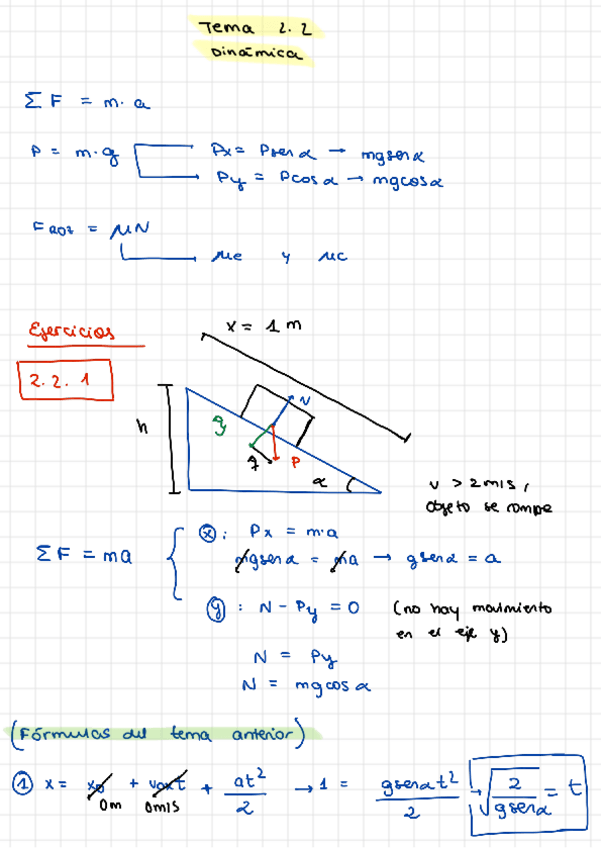 Tema 2.2
Dinámica
ΣF = m·a
P = m·g
Px = Psenα → mgsenα
Py = Pcosα → mgcosα
Froz = μN
μe y μc
Ejercicios
2.2.1
x = 1 m
h
y
N
P
α
v > 2m/s,
objeto se rompe
ΣF = ma
ⓧ: Px = m·a
mgsenα = ma → gsenα = a
ⓨ: N - Py = 0 (no hay movimiento
en el eje y)
N = Py
N = mgcosα
(Fórmulas del tema anterior)
① x = x0 + v0xt + at²/2 → 1 = gsenαt²/2 → √(2/gsenα) = t
0m 0m/s